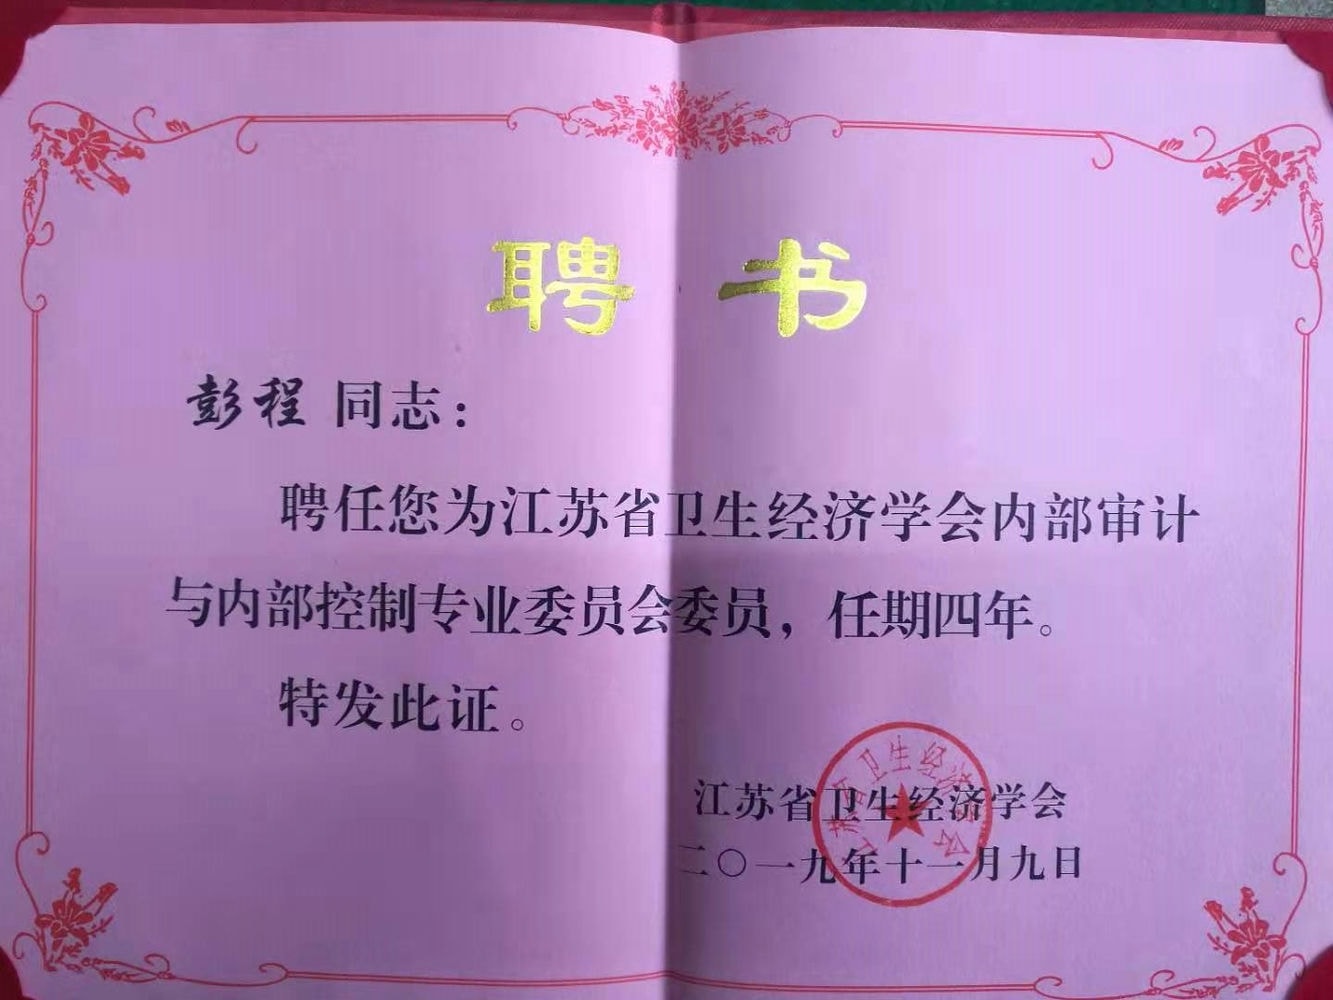 聘书
彭程 同志：
聘任您为江苏省卫生经济学会内部审计
与内部控制专业委员会委员，任期四年。
特发此证。
江苏省卫生经济学会
二〇一九年十一月九日
江苏省卫生经济学会